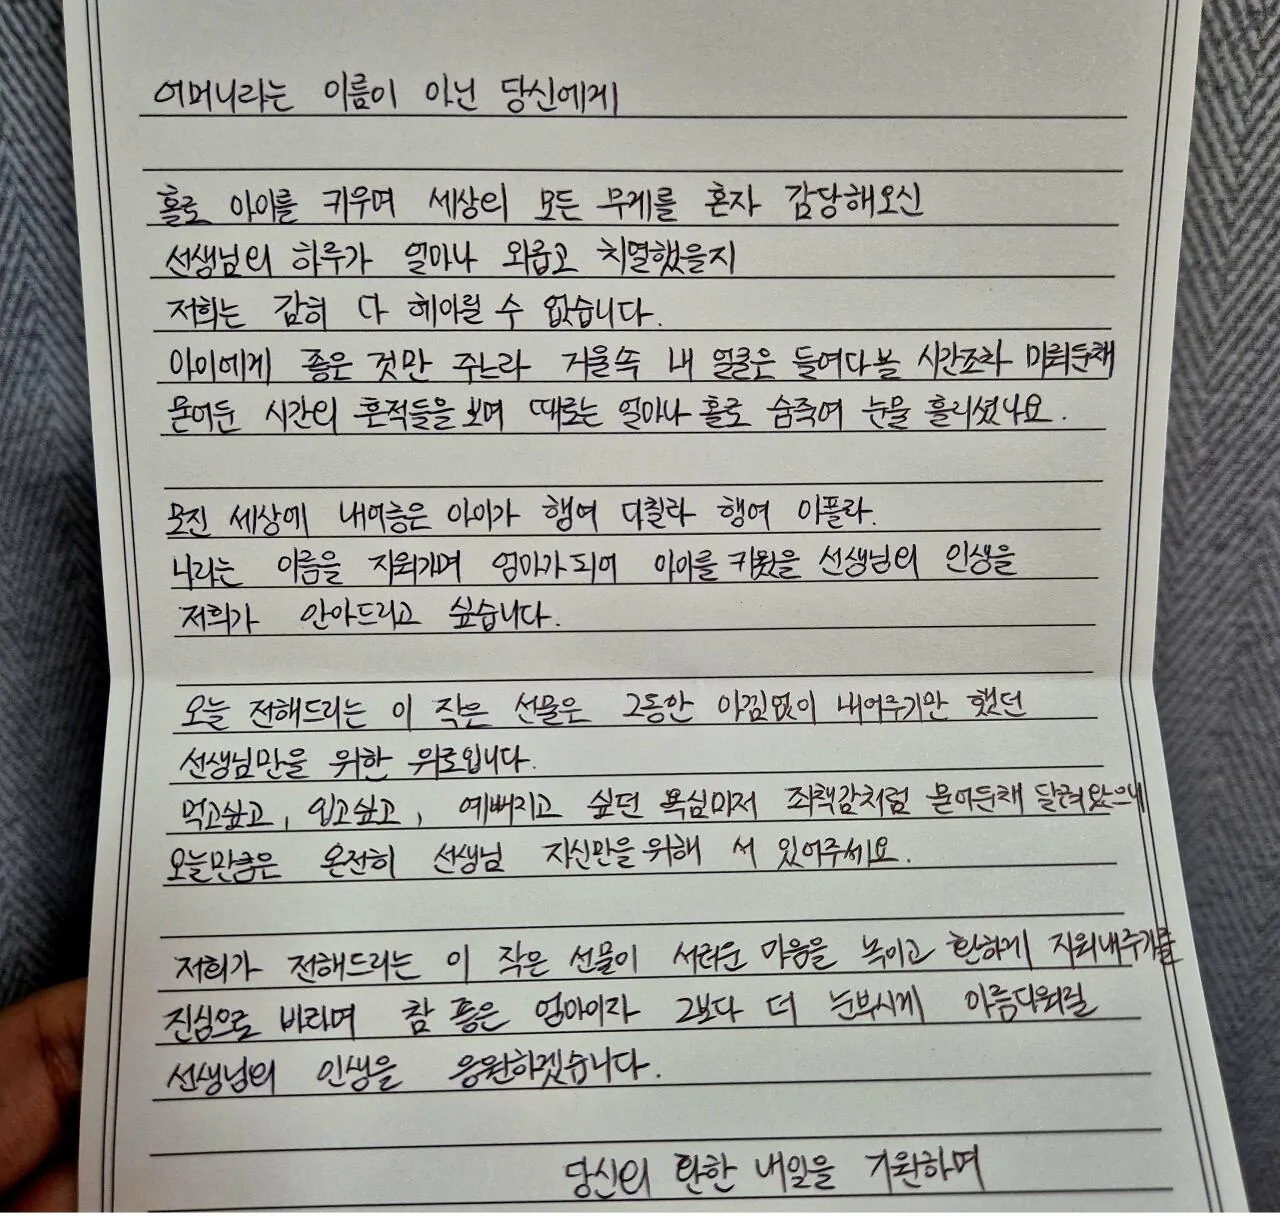 어머니라는 이름이 아닌 당신에게
홀로 아이를 키우며 세상의 모든 무게를 혼자 감당해오신
선생님의 하루가 얼마나 외롭고 치열했을지
저희는 감히 다 헤아릴 수 없습니다.
아이에게 좋은 것만 주느라 거울속 내 얼굴은 들여다볼 시간조차 미뤄둔채
묻어둔 시간의 흔적들을 보며 때로는 얼마나 홀로 숨죽여 눈물 흘리셨나요.
모진 세상에 내어놓은 아이가 행여 다칠라 행여 아플라.
나라는 이름을 지워가며 엄마가 되어 아이를 키웠을 선생님의 인생을
저희가 안아드리고 싶습니다.
오늘 전해드리는 이 작은 선물은 그동안 아낌없이 내어주기만 했던
선생님만을 위한 위로입니다.
먹고싶고, 입고싶고, 예뻐지고 싶던 욕심마저 죄책감처럼 묻어둔채 달려왔으니
오늘만큼은 온전히 선생님 자신만을 위해 서 있어주세요.
저희가 전해드리는 이 작은 선물이 서러운 마음을 녹이고 환하게 지워내주기를
진심으로 바라며 참 좋은 엄마이자 그보다 더 눈부시게 아름다워질
선생님의 인생을 응원하겠습니다.
당신의 환한 내일을 기원하며